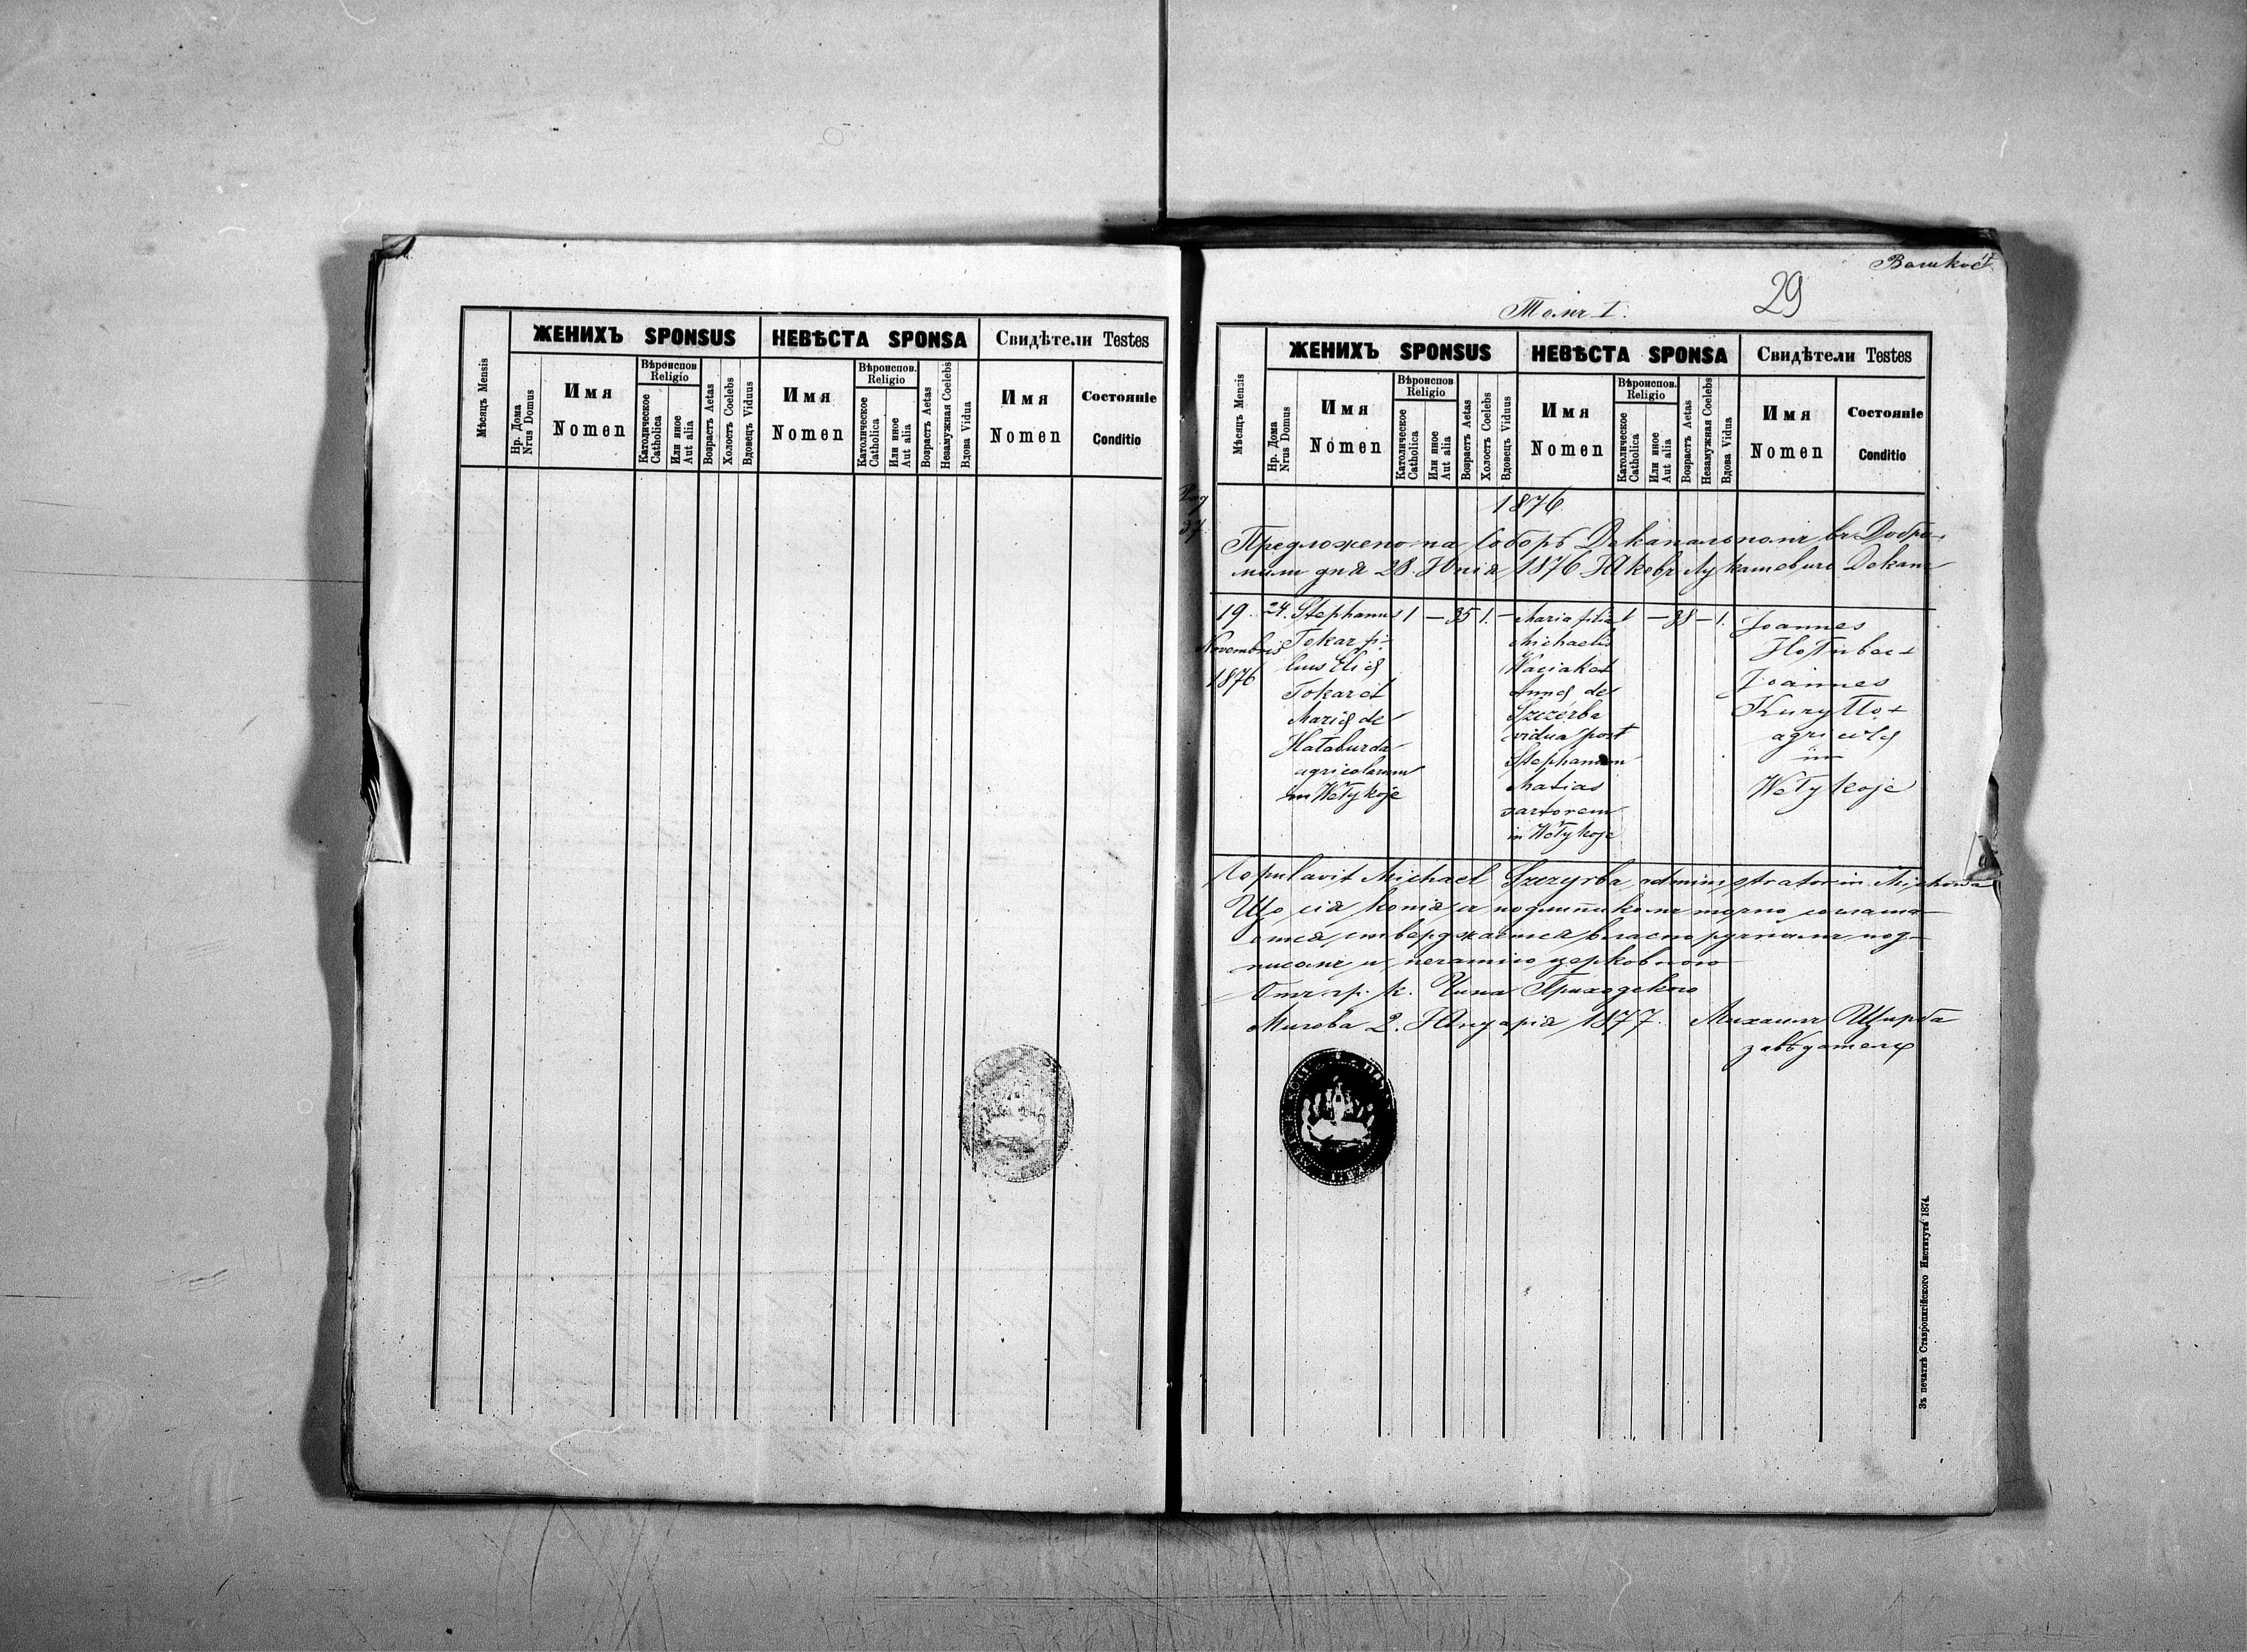 ЖЕНИХЪ SPONSUS
НЕВѢСТА SPONSA
Свидѣтели Testes
Мѣсяцъ Mensis
Нр. Дома
Nrus Domus
Имя
Nomen
Вѣроиспов.
Religio
Католическое
Catholica
Или иное
Aut alia
Возрастъ Aetas
Холостъ Coelebs
Вдовецъ Viduus
Имя
Nomen
Вѣроиспов.
Religio
Католическое
Catholica
Или иное
Aut alia
Возрастъ Aetas
Незамужная Coelebs
Вдова Vidua
Имя
Nomen
Состояніе
Conditio
29
Томъ I.
ЖЕНИХЪ SPONSUS
НЕВѢСТА SPONSA
Свидѣтели Testes
Мѣсяцъ Mensis
Нр. Дома
Nrus Domus
Имя
Nomen
Вѣроиспов.
Religio
Католическое
Catholica
Или иное
Aut alia
Возрастъ Aetas
Холостъ Coelebs
Вдовецъ Viduus
Имя
Nomen
Вѣроиспов.
Religio
Католическое
Catholica
Или иное
Aut alia
Возрастъ Aetas
Незамужная Coelebs
Вдова Vidua
Имя
Nomen
Состояніе
Conditio
Pag
37
1876
Предложено на Соборѣ Деканальномъ въ Добро-
мили дня 28. Юнія 1876 Яковъ Лукашевичъ Деканъ
19.
Novembris
1876
24.
Stephanus
Tokar fi-
lius Eliæ
Tokar et
Mariæ de
Hałaburda
agricolarum
in Wełykoje
1 — 35 1. —
Maria filia
Michaelis
Waciak et
Annæ de
Szczerba
vidua post
Stephanum
Matias
sartorem
in Wełykoje
1 — 38 — 1.
Joannes
Hołubec +
Joannes
Kuryłło +
agricolæ
in
Wełykoje
Copulavit Michael Szczyrba administrator in Michowa
Що сія копія съ подлинникомъ точно соглаша-
єтся, стверджаєтся власторучнымъ под-
писомъ и печатію церковною
Отъ гр. к. Чина Приходского
Михова 2. Януарія 1877. Михаилъ Щирба
завѣдатель
Зъ печатнѣ Ставропигійского Института 1874.